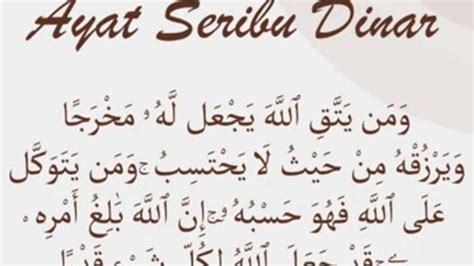 Ayat Seribu Dinar
وَمَن يَتَّقِ اللَّهَ يَجْعَل لَّهُۥ مَخْرَجًا
وَيَرْزُقْهُ مِنْ حَيْثُ لَا يَحْتَسِبُ ۚ وَمَن يَتَوَكَّلْ
عَلَى اللَّهِ فَهُوَ حَسْبُهُۥٓ ۚ إِنَّ اللَّهَ بَالِغُ أَمْرِهِۦ
ۚ قَدْ جَعَلَ اللَّهُ لِكُلِّ شَىْءٍ قَدْرًا